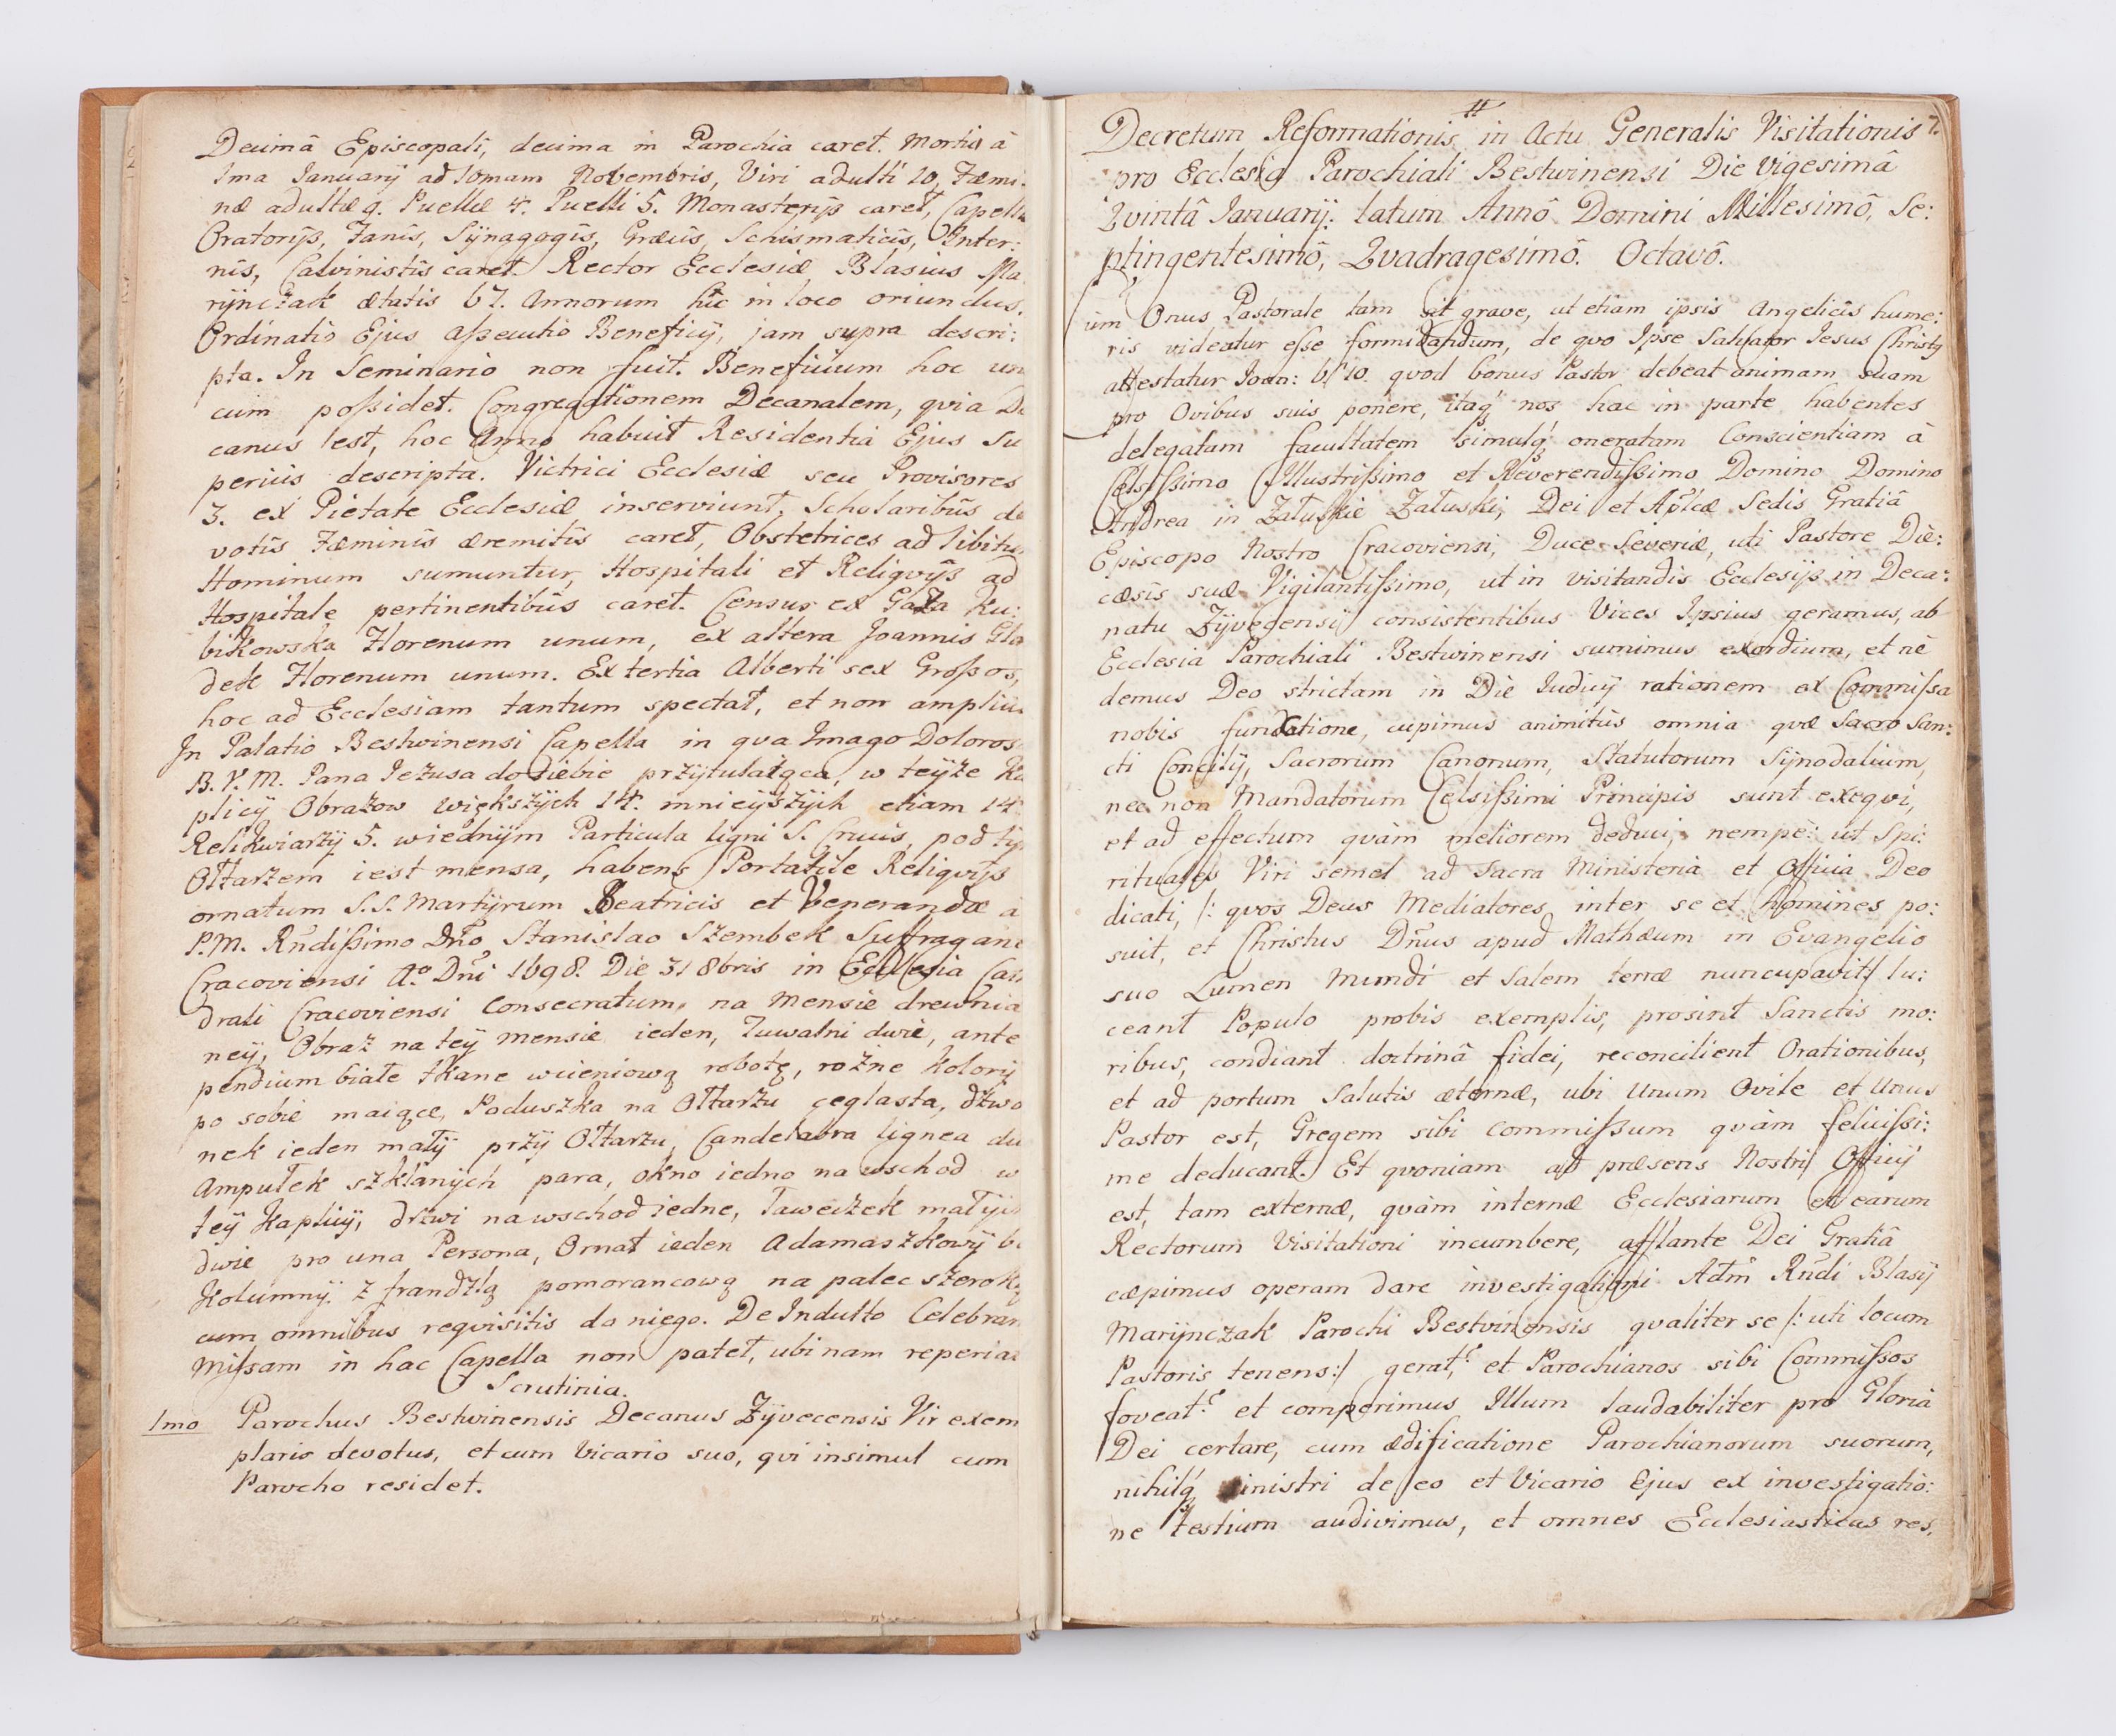 Decimâ Episcopali, decima in Parochia caret. Mortis à
1ma Januarij ad 10mam Novembris, Viri adulti 10, Fæmi:
næ adultæ 9. Puellæ 4. Puelli 5. Monasterijs caret, Capella
Oratorijs, Fanis, Sijnagogis, Græcis, Schismaticis,
nis, Calvinistis caret. Rector Ecclesiæ Blasius Ma
rijnczak ætatis 67. Annorum hîc in loco oriundus.
Ordinatio Ejus assecutio Beneficij, jam supra descri:
pta. In Seminario non fuit. Beneficium hoc un
cum possidet. Congregationem Decanalem, qvia De
canus est, hoc Anno habuit Residentia Ejus Su
perius descripta. Victrici Ecclesiæ seu Provisores
3. ex Pietate Ecclesiæ inserviunt, Scholaribûs de
votîs Fæminîs æremitîs caret, Obstetrices ad libitu
Hominum sumuntur, Hospitali et Religvijs ad
Hospitale pertinentibûs caret. Census ex Gaza Ku:
bikowska Florenum unum, ex altera Joannis Glo
dek Florenum unum. Ex tertia Alberti sex Grossos,
hoc ad Ecclesiam tantum spectat, et non ampliu
In Palatio Bestwinensi Capella in qva Imago Doloros
B.V.M. Pana Jezusa do siebie przÿtulaiąca, w teÿże Ka
plicÿ Obrazow większÿch 14. mnieÿszÿch etiam 14
Relikwiarzÿ 5. w iednÿm Particula ligni S. Crucis, pod tÿ
Ołtarzem iest mensa, habens Portatile Religvijs
ornatum S.S. Martÿrum Beatricis et Venerandæ a
P.M. Rñdissimo Dño Stanislao Szembek Suffragane
Cracoviensi Aº Dñi 1698. Die 31 8bris in Ecclesia Cat
drali Cracoviensi Consecratum, na mensie drewnia
neÿ, Obraz na teÿ mensie ieden, Tuwalni dwie, ante
pendium białe tkane wcieniową robotą, rożne kolorÿ
po sobie maiące, Poduszka na Ołtarzu ceglasta, dzwo
nek ieden małÿ przÿ Ołtarzu, Candelabra lignea du
Ampułek szklanÿch para, okno iedno na wschod w
teÿ kaplicÿ, drzwi na wschod iedne, Ławeczek małÿch
dwie pro una Persona, Ornat ieden Adamaszkowÿ b
kolumnÿ z frandzlą pomorancową na palec szeroką
cum omnibus reqvisitis do niego. De Indulto Celebran
Missam in hac Capella non patet, ubi nam reperia
Scrutinia.
1mo Parochus Bestwinensis Decanus Zÿvecensis Vir exem
plaris devotus, et cum Vicario suo, qvi insimul cum
Parocho residet.
#
7.
Decretum Reformationis in Actu Generalis Visitationis
pro Ecclesia Parochiali Bestwinensi Die Vigesimâ
Qvintâ Januarij. latum Annô Domini Millesimô, Se:
ptingentesimô, Qvadragesimô. Octavô.
Cùm Onus Pastorale tam sit grave, ut etiam ipsis Angelicîs hume:
ris videatur esse formidandum, de qvo Ipse Salvator Jesus Christg
attestatur Joan: 10. qvod bonus Pastor debeat animam suam
pro Ovibus suis ponere, itaq' nos hac in parte habentes
delegatam facultatem simulq' oneratam Conscientiam à
Celsissimo Illustrissimo et Reverendissimo Domino Domino
Andrea in Załuskie Załuski, Dei et Aplcæ Sedis Gratiâ
Episcopo Nostro Cracoviensi, Duce Severiæ, uti Pastore Diè:
cæsis suæ Vigilantissimo, ut in visitandis Ecclesijs in Deca:
natu Zÿvecensi consistentibus Vices Ipsius geramus, ab
Ecclesia Parochiali Bestwinensi sumimus exordium, et nè
demus Deo strictam in Die Judicij rationem ex Commissa
nobis functione, cupimus animitùs omnia qvæ Sacro San:
cti Concilij, Sacrorum Canonum, Statutorum Sÿnodalium,
nec non Mandatorum Celsissimi Principis sunt exeqvi,
et ad effectum qvàm meliorem deduci, nempè: ut Spi:
rituales Viri semel ad Sacra Ministeria et Officia Deo
dicati, /: qvos Deus Mediatores inter se et homines po:
suit, et Christus Dñus apud Mathæum in Evangelio
suo Lumen Mundi et Salem terræ nuncupavit/ lu:
ceant Populo probis exemplis, prosint Sanctis mo:
ribus, condiant doctrinâ fidei, reconcilient Orationibus,
et ad portum Salutis æternæ, ubi Unum Ovile et Unus
Pastor est, Gregem sibi commissum qvàm felicissi:
me deducant. Et qvoniam ad præsens Nostri Officij
est, tam externæ, qvàm internæ Ecclesiarum et earum
Rectorum Visitationi incumbere, afflante Dei Gratiâ
cæpimus operam dare investigationi Adm̃ Rñdi Blasij
Marÿnczak Parochi Bestvinensis qvaliter se /: uti locum
Pastoris tenens:/ gerat? et Parochianos sibi Commissos
foveat? et comperimus Illum laudabiliter pro Gloria
Dei certare, cum ædificatione Parochianorum suorum,
nihilq' sinistri de eo et Vicario Ejus ex investigatio:
ne testium audivimus, et omnes Ecclesiasticas res,